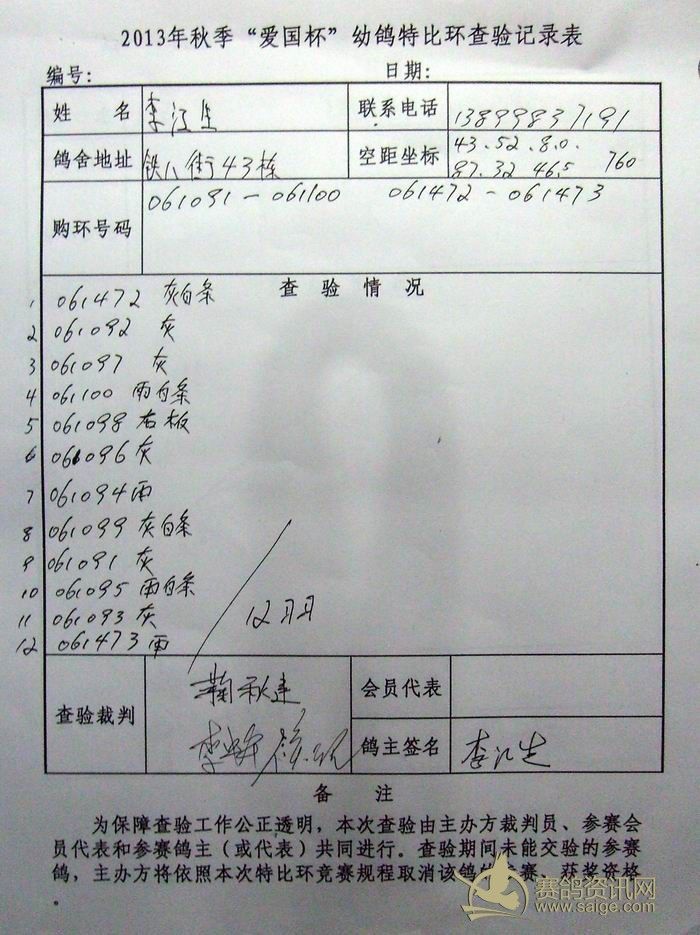 2013年秋季“爱国杯”幼鸽特比环查验记录表
编号: 日期:
姓 名 李江生 联系电话 13899837191
鸽舍地址 铁八街43栋 空距坐标 43.52.80.
87.32 46.5 760
购环号码 061091-061100 061472-061473
查 验 情 况
1 061472 灰白条
2 061092 灰
3 061097 灰
4 061100 雨白条
5 061098 石板
6 061096 灰
7 061094 雨
8 061099 灰白条
9 061091 灰
10 061095 雨白条
11 061093 灰
12 061473 雨
12羽
查验裁判 秋建 会员代表
李 鸽主签名 李江生
备 注
为保障查验工作公正透明，本次查验由主办方裁判员、参赛会
员代表和参赛鸽主（或代表）共同进行。查验期间未能交验的参赛
鸽，主办方将依照本次特比环竞赛规程取消该鸽的参赛、获奖资格
。
赛鸽资讯网
www.saige.com